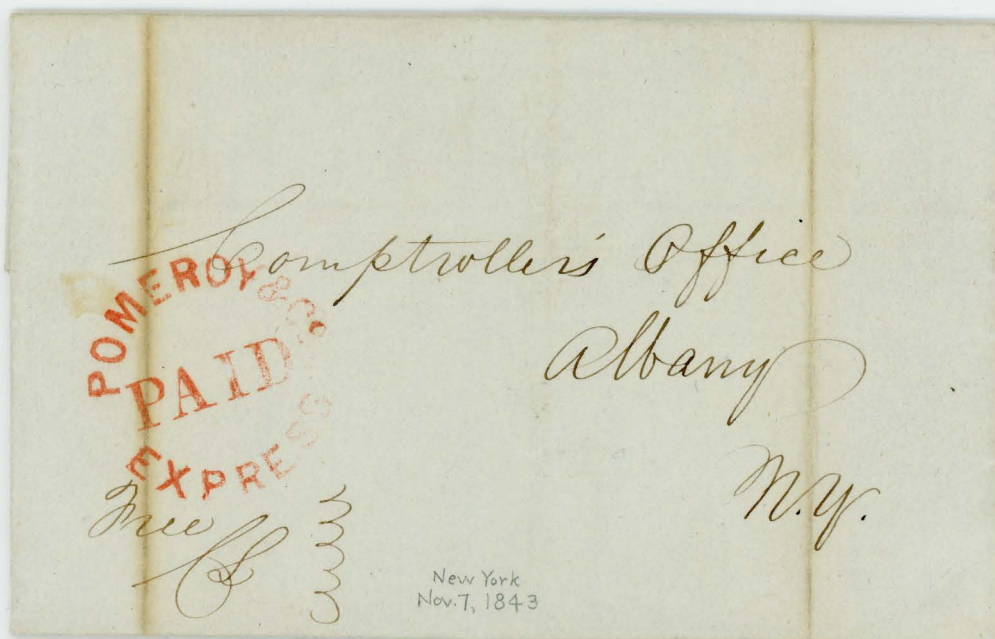 Comptroller's Office
Albany
N.Y.
POMEROY & Co.
PAID
EXPRESS
Free
New York
Nov. 7, 1843